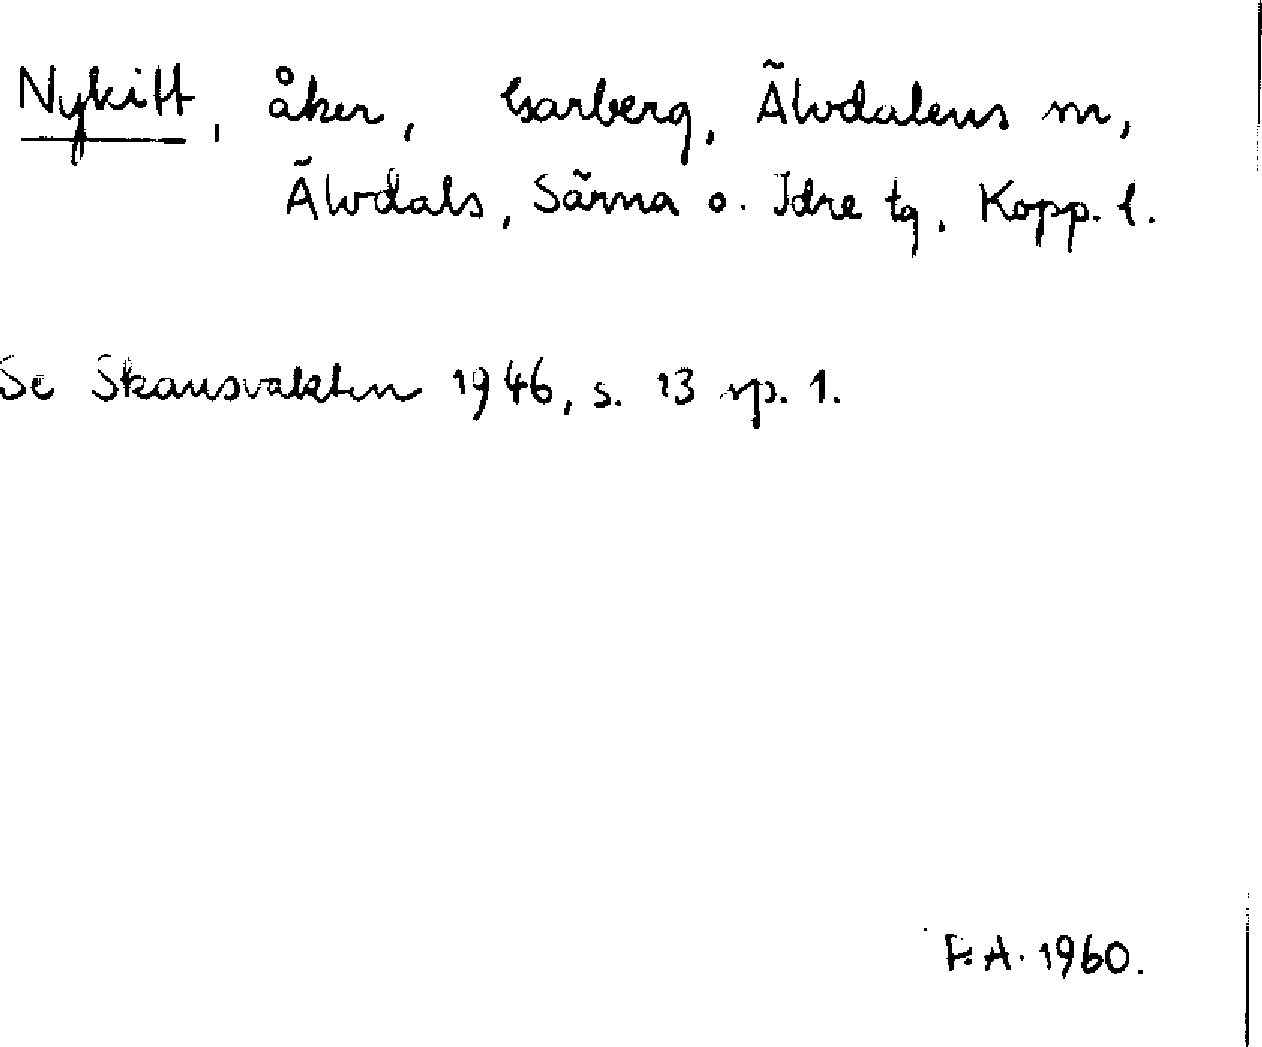 Nykitt, åker, Garberg, Älvdalens sn,
Älvdals, Särna o. Idre tg, Kopp. l.
Se Skansvakten 1946, s. 13 sp. 1.
F. A. 1960.